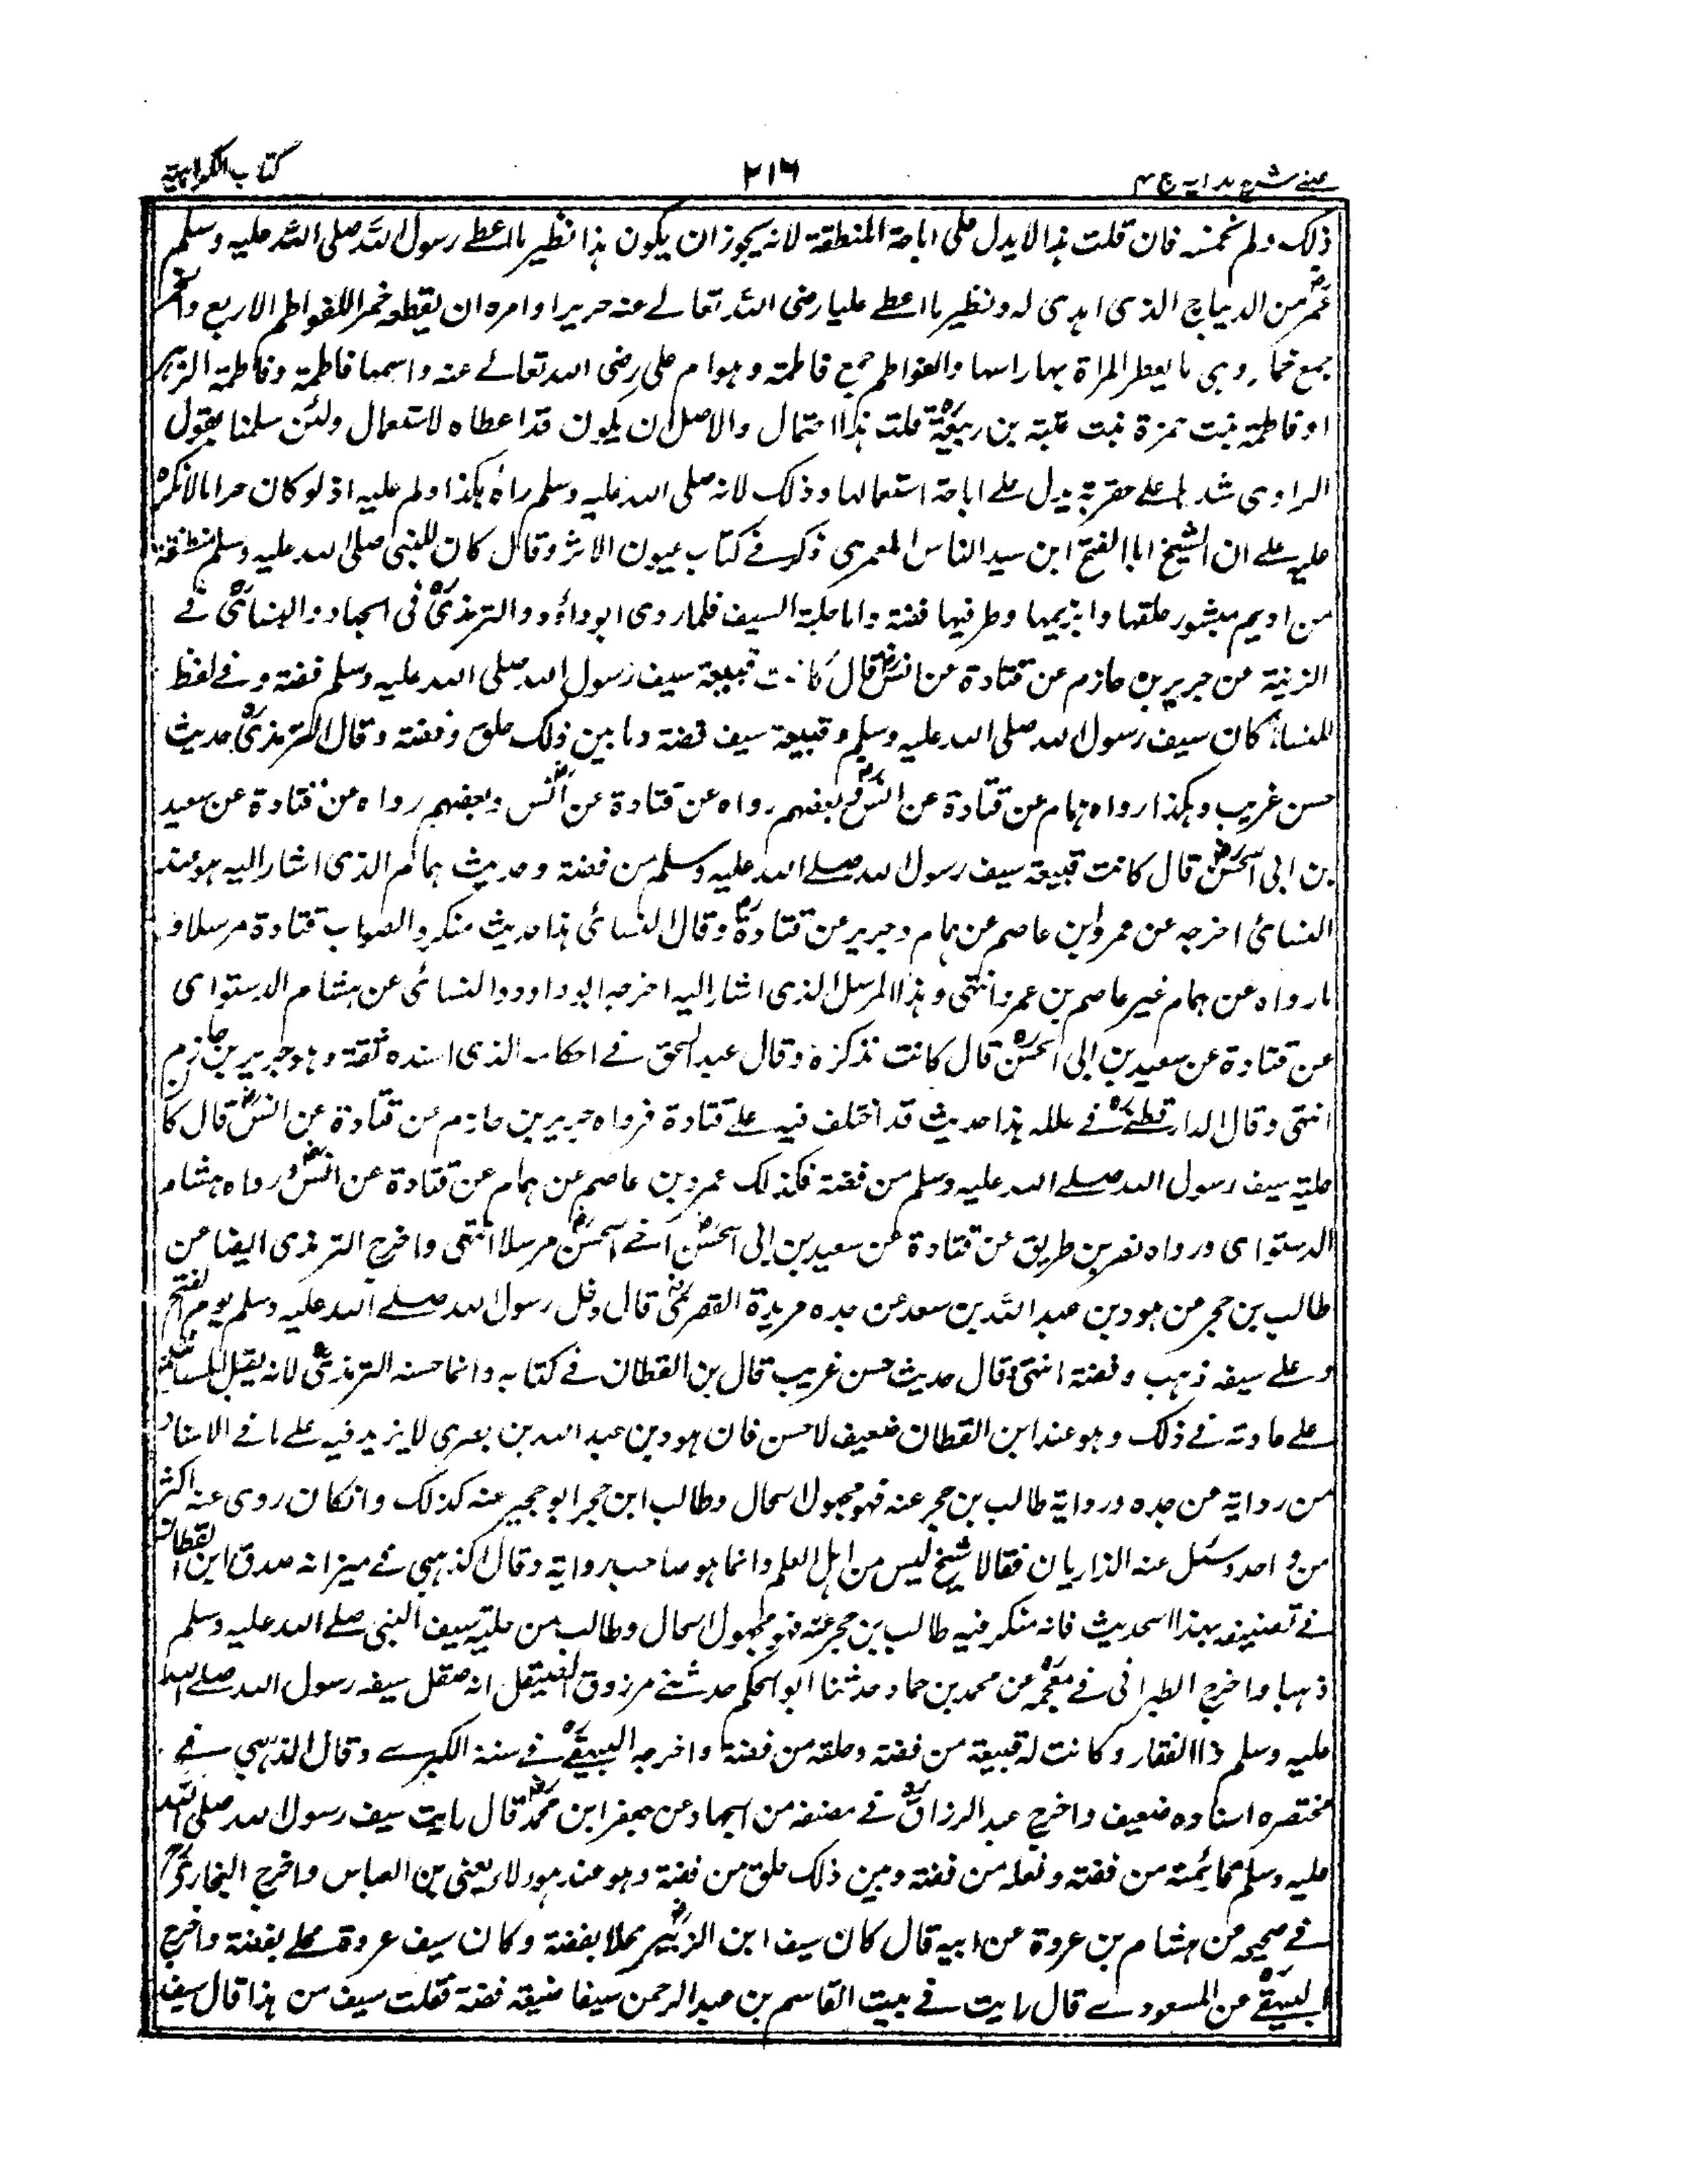 عینے شرح ہدایہ ج ۴
۲۱۶
کتاب الکراہیۃ
ذلک ولم نخمسہ فان قلت ہذا لایدل علی اباحۃ المنطقۃ لانہ یجوز ان یکون ہذا نظیر ما اعطے رسول اللہ صلی اللہ علیہ وسلم
عمرؓ من الدیباج الذی اہدی لہ ونظیر ما اعطے علیا رضی اللہ تعالے عنہ حریرا وامرہ ان یقطعہ خمرا للفواطم الاربع والخمر
جمع خمار وہی ما یغطر المراۃ بہا راسہا والفواطم جمع فاطمۃ وہو ام علی رضی اللہ تعالے عنہ واسمہا فاطمۃ وفاطمۃ الزہر
او فاطمۃ بنت حمزۃ بنت عتبۃ بن ربیعۃؓ قلت ہذا احتمال والاصل ان یکون قد اعطاہ لاستعمال ولئن سلمنا یقول
الراوی شدہا علے حقربۃ یدل علے اباحۃ استعمالہا وذلک لانہ صلی اللہ علیہ وسلم راہ ہکذا ولم علیہ اذ لو کان حراما لانکرہ
علیہ علے ان الشیخ ابا الفتح ابن سید الناس المعمری ذکر فے کتاب عیون الاثر وقال کان للنبی صلی اللہ علیہ وسلم منطقۃ
من ادیم مبشور حلقہا وابزیمہا وطرفیہا فضۃ واما حلیۃ السیف فلما روی ابوداؤد والترمذیؒ فی الجہاد والنسائیؒ فے
الزینۃ عن جریر بن حازم عن قتادۃ عن انسؓ قال کانت قبیعۃ سیف رسول اللہ صلی اللہ علیہ وسلم فضۃ وفے لفظ
للنسائی کان سیف رسول اللہ صلی اللہ علیہ وسلم وقبیعۃ سیف فضۃ وما بین ذلک حلق وفضۃ وقال الترمذیؒ حدیث
حسن غریب وہکذا رواہ ہمام عن قتادۃ عن انسؓ وبعضہم رواہ عن قتادۃ عن انسؓ وبعضہم رواہ عن قتادۃ عن سعید
بن ابی الحسنؓ قال کانت قبیعۃ سیف رسول اللہ صلے اللہ علیہ وسلم من فضۃ وحدیث ہمام الذی اشار الیہ ہو عند
النسائی اخرجہ عن عمرو بن عاصم عن ہمام وجریر عن قتادۃؒ وقال النسائی ہذا حدیث منکر والصواب قتادۃ مرسلا و
ما رواہ عن ہمام غیر عاصم بن عمرو انتہی وہذا المرسل الذی اشار الیہ اخرجہ ابوداود والنسائی عن ہشام الدستوای
عن قتادۃ عن سعید بن ابی الحسنؒ قال کانت تذکرہ وقال عبدالحق فے احکامہ الذی اسندہ ثقۃ وہو جریر بن حازم
انتہی وقال الدارقطنےؒ فے عللہ ہذا حدیث قد اختلف فیہ علے قتادۃ فرواہ جریر بن حازم عن قتادۃ عن انسؓ قال کان
حلیۃ سیف رسول اللہ صلے اللہ علیہ وسلم من فضۃ فکذلک عمرو بن عاصم عن ہمام عن قتادۃ عن انسؓ ورواہ ہشام
الدستوای ورواہ نصر بن طریق عن قتادۃ عن سعید بن ابی الحسنؓ اخے الحسنؓ مرسلا انتہی واخرج الترمذی ایضا عن
طالب بن حجر عن ہود بن عبد اللہ بن سعد عن جدہ مریدۃ القصریؓ قال دخل رسول اللہ صلے اللہ علیہ وسلم یوم الفتح
وعلے سیفہ ذہب وفضۃ انتہی وقال حدیث حسن غریب قال بن القطان فے کتابہ وانما حسنہ الترمذیؒ لانہ یقبل المساتیر
علے عادتہ فے ذلک وہو عند ابن القطان ضعیف لاحسن فان ہود بن عبد اللہ بن بصری لا یزید فیہ علے ما فے الاسناد
من روایۃ عن جدہ وروایۃ طالب بن حجر عنہ فہو مجہول الحال وطالب ابن حجر ابو حجیر عنہ کذلک وانکان روی عنہ اکثر
من واحد وسئل عنہ الذاریان فقالا شیخ لیس من اہل العلم وانما ہو صاحب روایۃ وقال الذہبی فے میزانہ صدق ابن القطان
فے تضعیفہ بہذا الحدیث فانہ منکر فیہ طالب بن حجر عنہ فہو مجہول الحال وطالب من حلیۃ سیف النبی صلے اللہ علیہ وسلم
ذہبا واخرج الطبرانی فے معجمہؒ عن محمد بن حماد حدثنا ابو الحکم حدثنے مرزوق الصیقل انہ صقل سیفہ رسول اللہ صلے اللہ
علیہ وسلم ذاالفقار وکانت لہ قبیعۃ من فضۃ وحلقہ من فضۃ واخرجہ البیہقےؒ فے سننہ الکبرے وقال الذہبی فے
مختصرہ اسنادہ ضعیف واخرج عبد الرزاقؒ فے مصنفہ من الجہاد عن جعفر ابن محمدؓ قال رایت سیف رسول اللہ صلی اللہ
علیہ وسلم قائمتہ من فضۃ ونعلہ من فضۃ وبین ذلک حلق من فضۃ وہو عند ہولا یعنی بن العباس واخرج البخاریؒ
فے صحیحہ من ہشام بن عروۃ عن ابیہ قال کان سیف ابن الزبیرؓ محلا بفضۃ وکان سیف عروۃ محلے بفضۃ واخرج
البیہقےؒ عن المسعودے قال رایت فے بیت القاسم بن عبد الرحمن سیفا ضیقہ فضۃ فقلت سیف من ہذا قال سیف